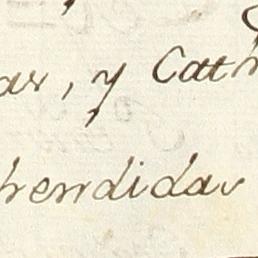 as, y Cath
hendidas